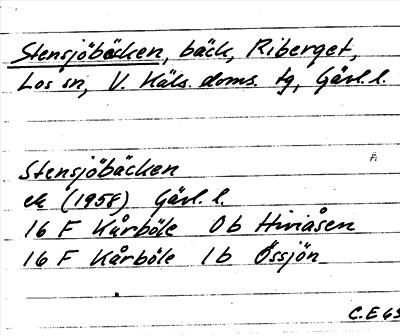 Stensjöbäcken, bäck, Riberget,
Los sn, V. Häls. doms. tg, Gävl. l.
Stensjöbäcken
ek (1958) Gävl. l.
16 F Kårböle 0b Hiviåsen
16 F Kårböle 1b Össjön
C.E 63